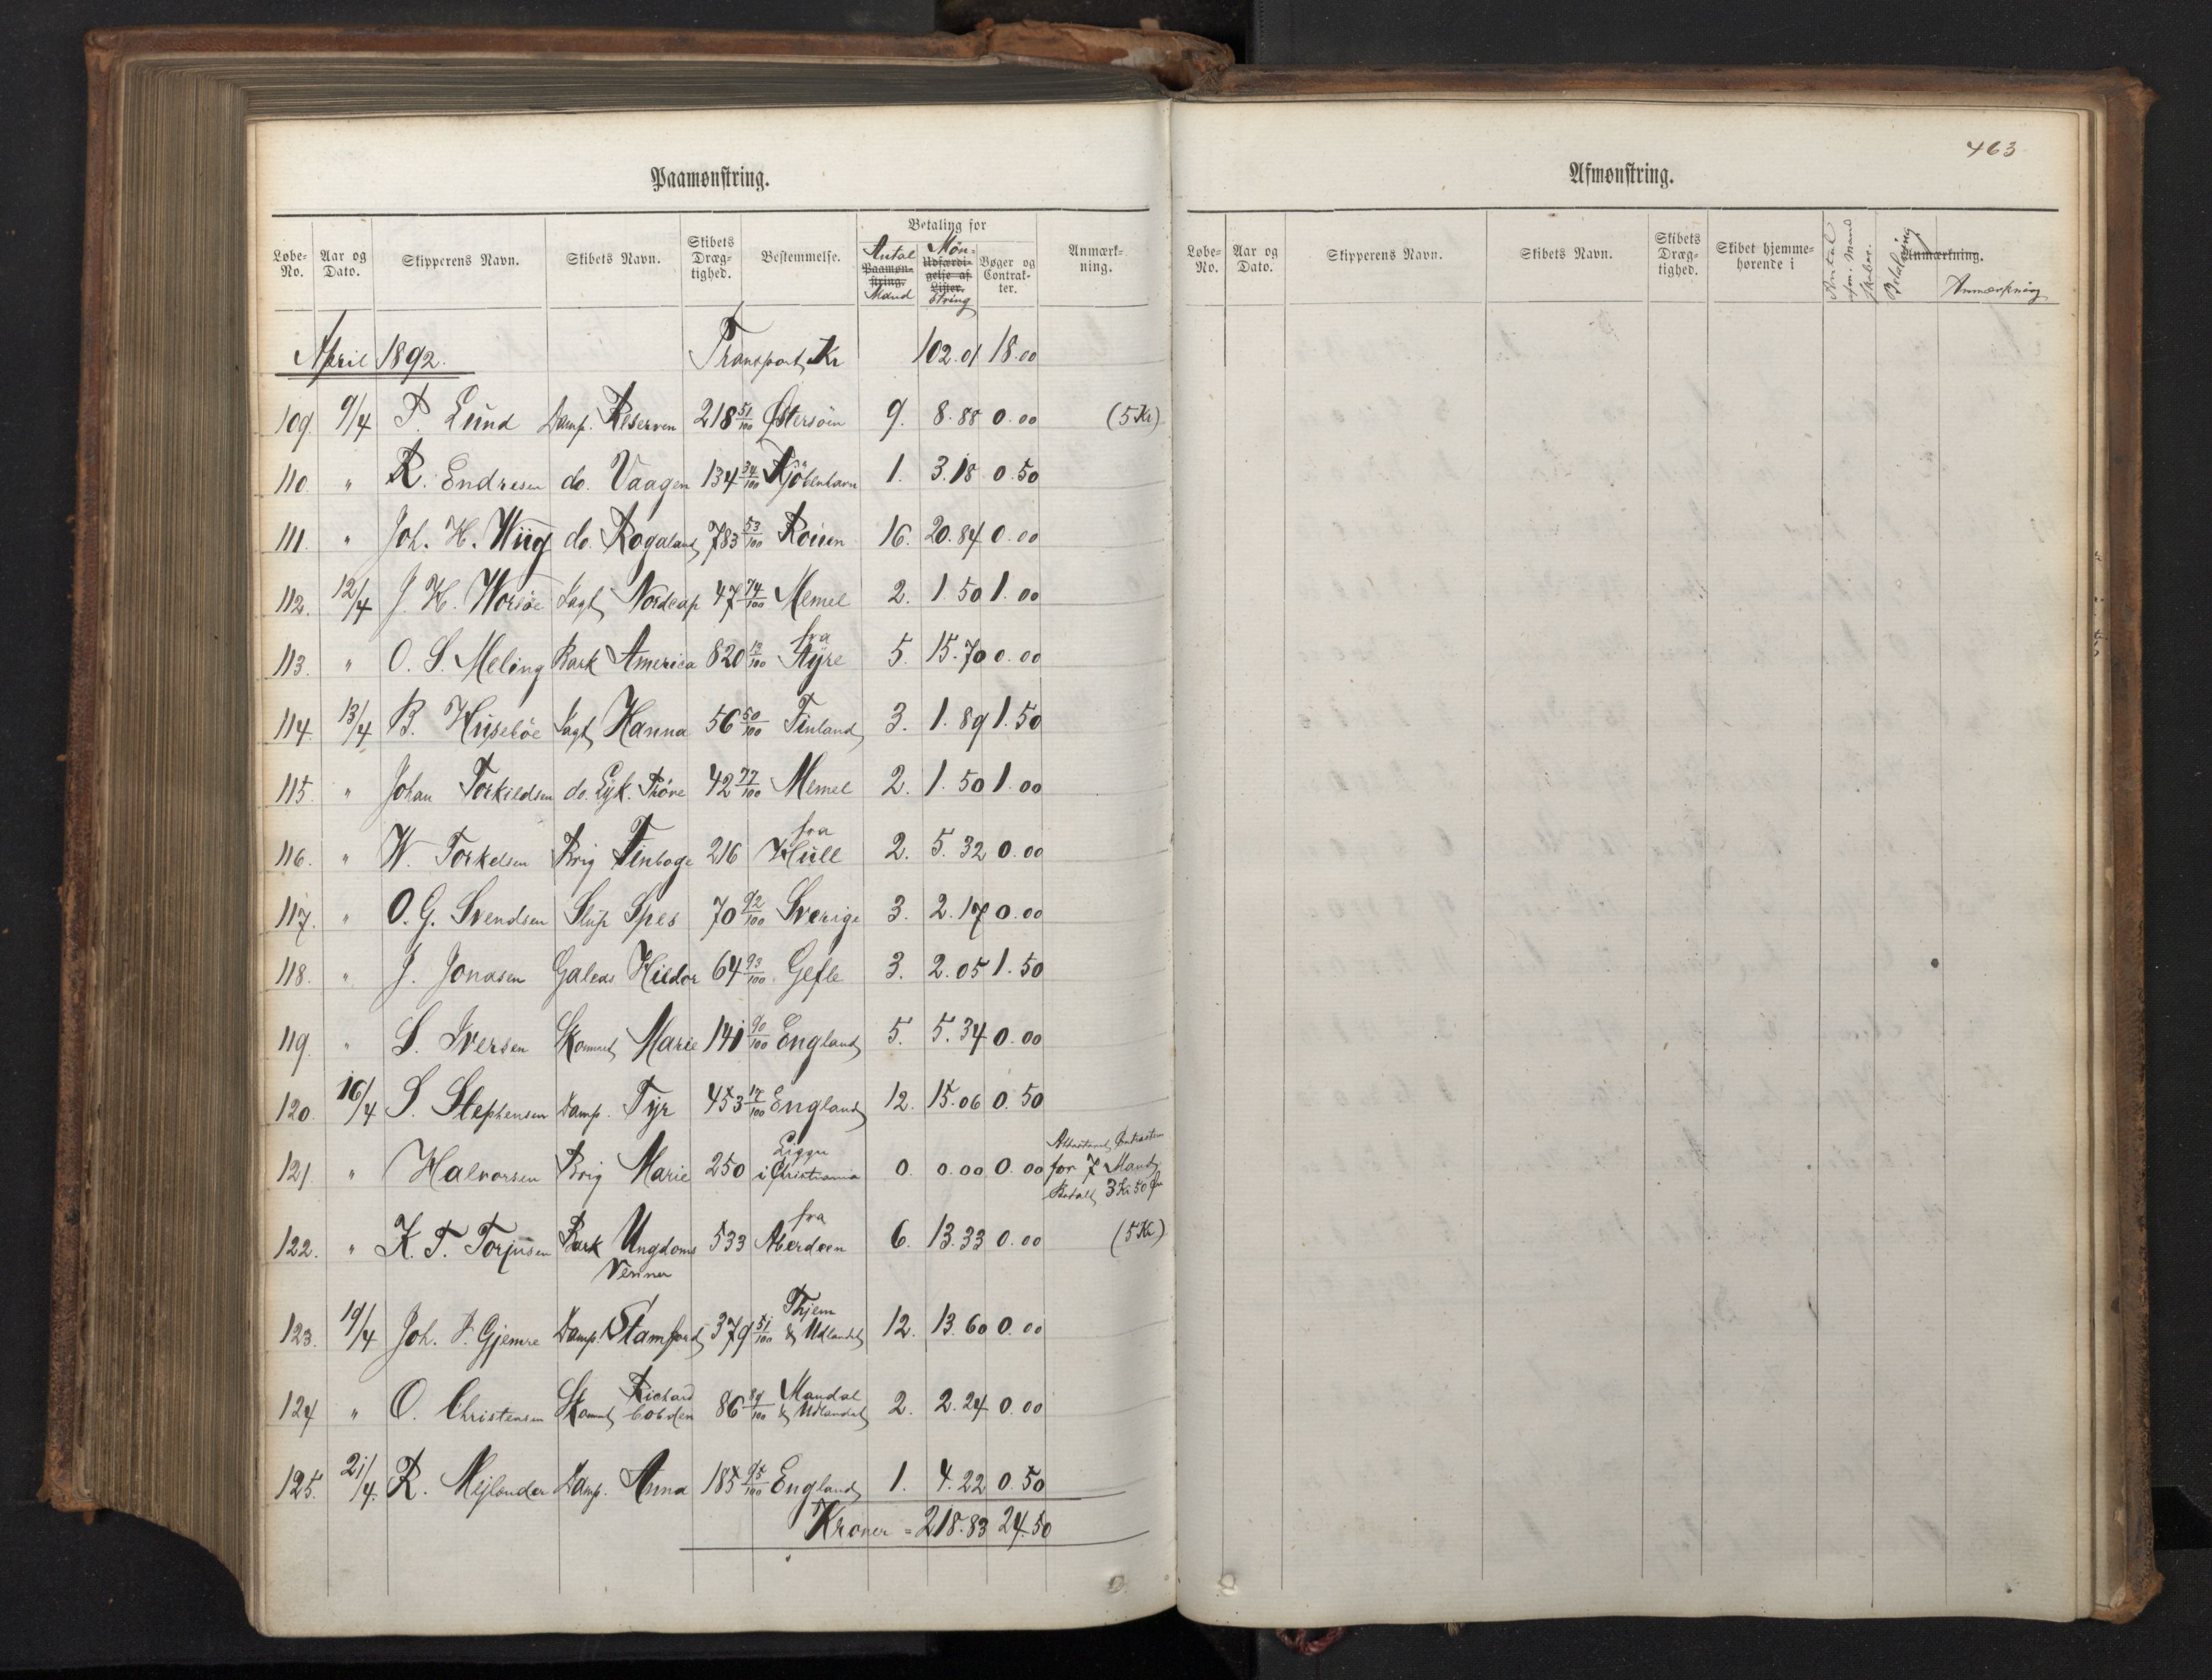 Paamønstring.
Løbe-No. Aar og Dato. Skipperens Navn. Skibets Navn. Skibets Dræg-tighed. Bestemmelse. Betaling for Anmærk-ning.
Antal Paamøn-string. Mand Møn- Udfærdi-gelse af Lister. string Bøger og Contrak-ter.
April 1892. Transport Kr 102.01 18.00
109. 9/4 P. Lund Damp. Reserven 218 51/100 Østersøen 9. 8.88 0.00 (5 Kr)
110 " R. Endresen do. Vaagen 134 34/100 Kjöbenhavn 1. 3.18 0.50
111. " Joh. H. Wiig do. Rogaland 783 53/100 Rouen 16. 20.84 0.00
112. 12/4 J. H. Worsöe Jagt Nordcap 47 74/100 Memel 2. 1.50 1.00
113. " O. S. Meling Bark America 820 12/100 fra Ayre 5. 15.70 0.00
114. 13/4 B. Huseböe Jagt Hanna 56 50/100 Finland 3. 1.89 1.50
115. " Johan Torkildsen do. Lyk. Pröve 42 77/100 Memel 2. 1.50 1.00
116. " W. Torkelsen Brig Finboge 216 fra Hull 2. 5.32 0.00
117. " O. G. Svendsen Slup Spes 70 92/100 Sverige 3. 2.17 0.00
118. " J. Jonasen Galeas Hildor 64 93/100 Gefle 3. 2.05 1.50
119. " S. Iversen Skonnert Marie 141 90/100 England 5. 5.34 0.00
120. 16/4 S. Stephensen Damp. Tyr 453 17/100 England 12. 15.06 0.50
121. " Halvorsen Brig Marie 250 Ligger i Christiania 0. 0.00 0.00 Contracter for 7 Mand Betalt 3 Kr 50
122. " K. T. Torjusen Bark Ungdoms Venner 533 fra Aberdeen 6. 13.33 0.00 (5 Kr)
123. 19/4 Joh. P. Gjemre Damp. Stamford 379 51/100 Thjem & Udlandet 12. 13.60 0.00
124 " O. Christensen Skonnert Richard Cobden 86 89/100 Mandal & Udlandet 2. 2.24 0.00
125. 21/4. R. Mejlænder Damp. Anna 185 95/100 England 1. 4.22 0.50
Kroner = 218.83 24.50
463
Afmønstring.
Løbe-No. Aar og Dato. Skipperens Navn. Skibets Navn. Skibets Dræg-tighed. Skibet hjemme-hørende i Antal Mand Betaling Anmærkning. Anmærkning